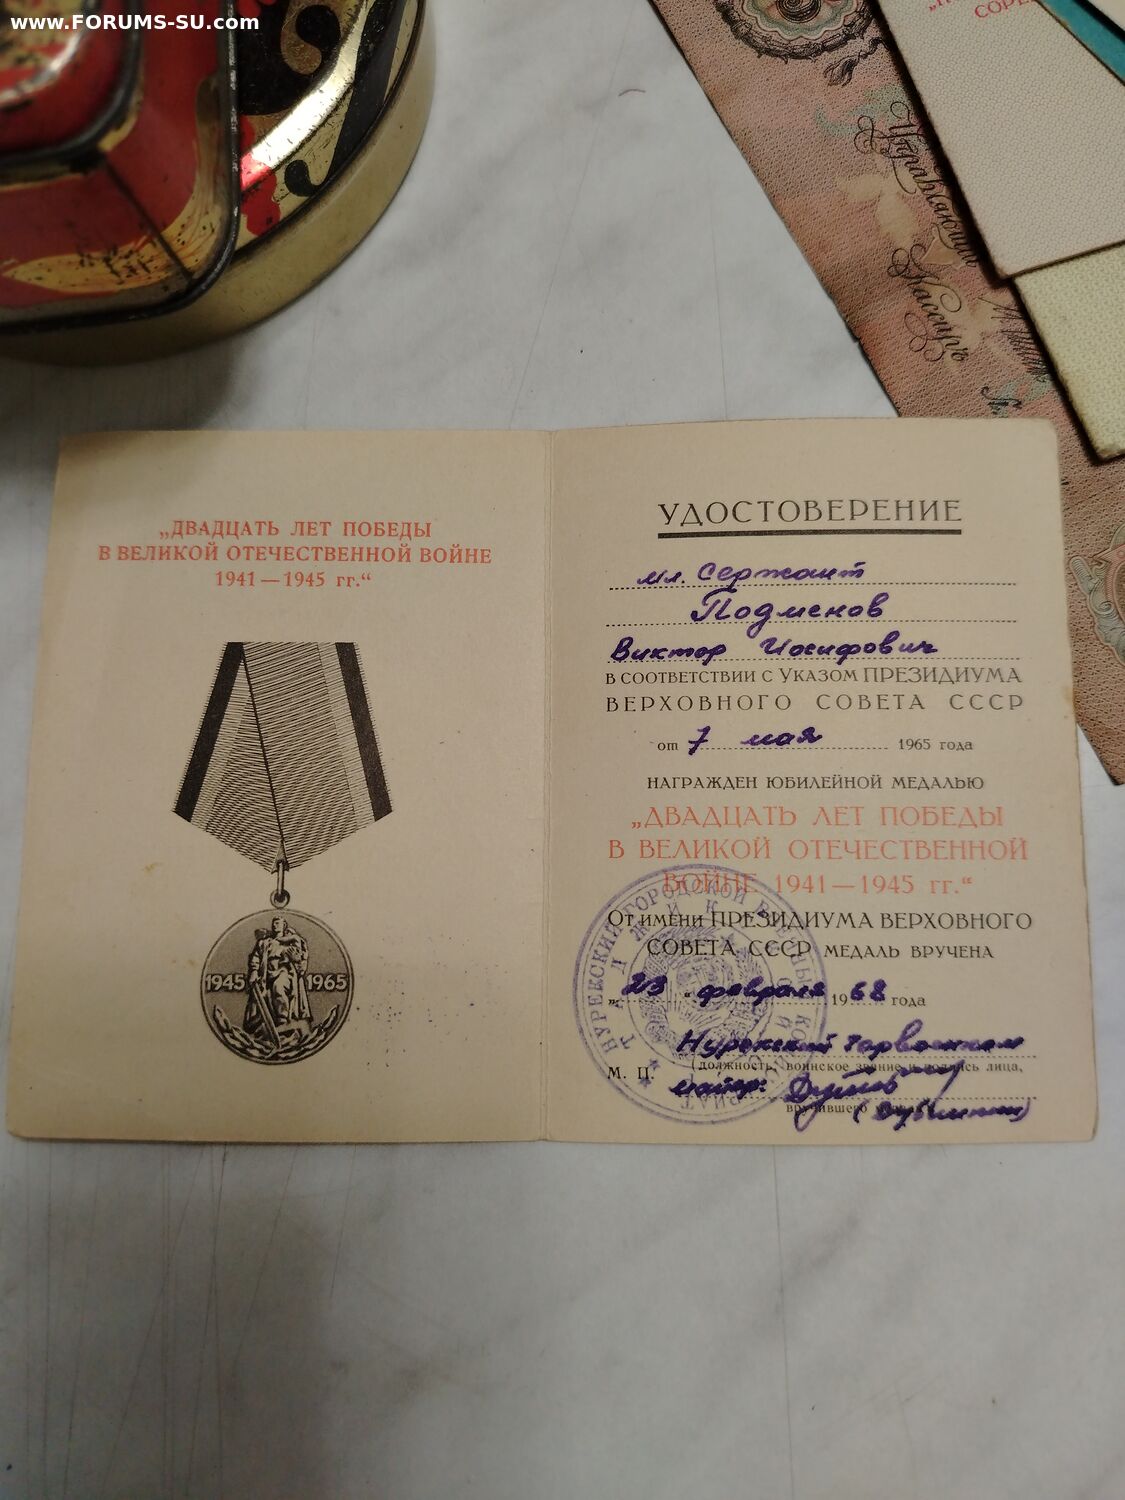 www.FORUMS-SU.com
СОРЕ
Управляющий
Кассиръ
„ДВАДЦАТЬ ЛЕТ ПОБЕДЫ
В ВЕЛИКОЙ ОТЕЧЕСТВЕННОЙ ВОЙНЕ
1941—1945 гг.“
1945 1965
УДОСТОВЕРЕНИЕ
мл. Сержант
Подменов
Виктор Иосифович
В СООТВЕТСТВИИ С УКАЗОМ ПРЕЗИДИУМА
ВЕРХОВНОГО СОВЕТА СССР
от 7 мая 1965 года
НАГРАЖДЕН ЮБИЛЕЙНОЙ МЕДАЛЬЮ
„ДВАДЦАТЬ ЛЕТ ПОБЕДЫ
В ВЕЛИКОЙ ОТЕЧЕСТВЕННОЙ
ВОЙНЕ 1941—1945 гг.“
ОТ ИМЕНИ ПРЕЗИДИУМА ВЕРХОВНОГО
СОВЕТА СССР МЕДАЛЬ ВРУЧЕНА
„23“ февраля 1968 года
Нурекский горвоенком
(должность, воинское звание и подпись лица,
М. П.
майор:
вручившего
НУРЕКСКИЙ ГОРОДСКОЙ ВОЕННЫЙ КОМИССАРИАТ